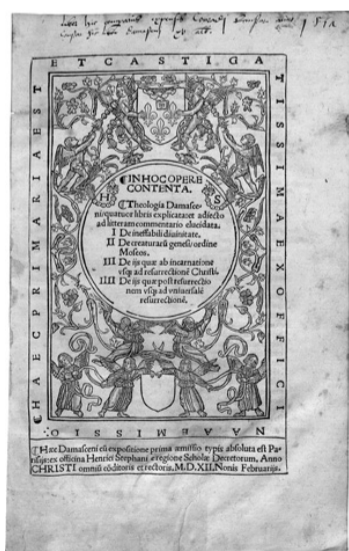 ET CASTIGA
TISSIMA EX OFFICI
NA AEMISSIO.
HAEC PRIMARIA EST
¶IN HOC OPERE
CONTENTA.
H S
¶Theologia Damasce-
ni, quatuor libris explicata: et adiecto
ad litteram commentario elucidata.
I De ineffabili diuinitate.
II De creaturarũ genesi, ordine
Moseos.
III De ijs quæ ab incarnatione
vsq; ad resurrectionẽ Christi.
IIII De ijs quæ post resurrectio
nem vsq; ad vniuersalẽ
resurrectionẽ.
¶Hæc Damasceni cũ expositione prima æmissio typis absoluta est Pa-
risijs: ex officina Henrici Stephani e regione Scholæ Decretorum, Anno
CHRISTI omniũ cõditoris et rectoris, M.D.XII, Nonis Februarijs.